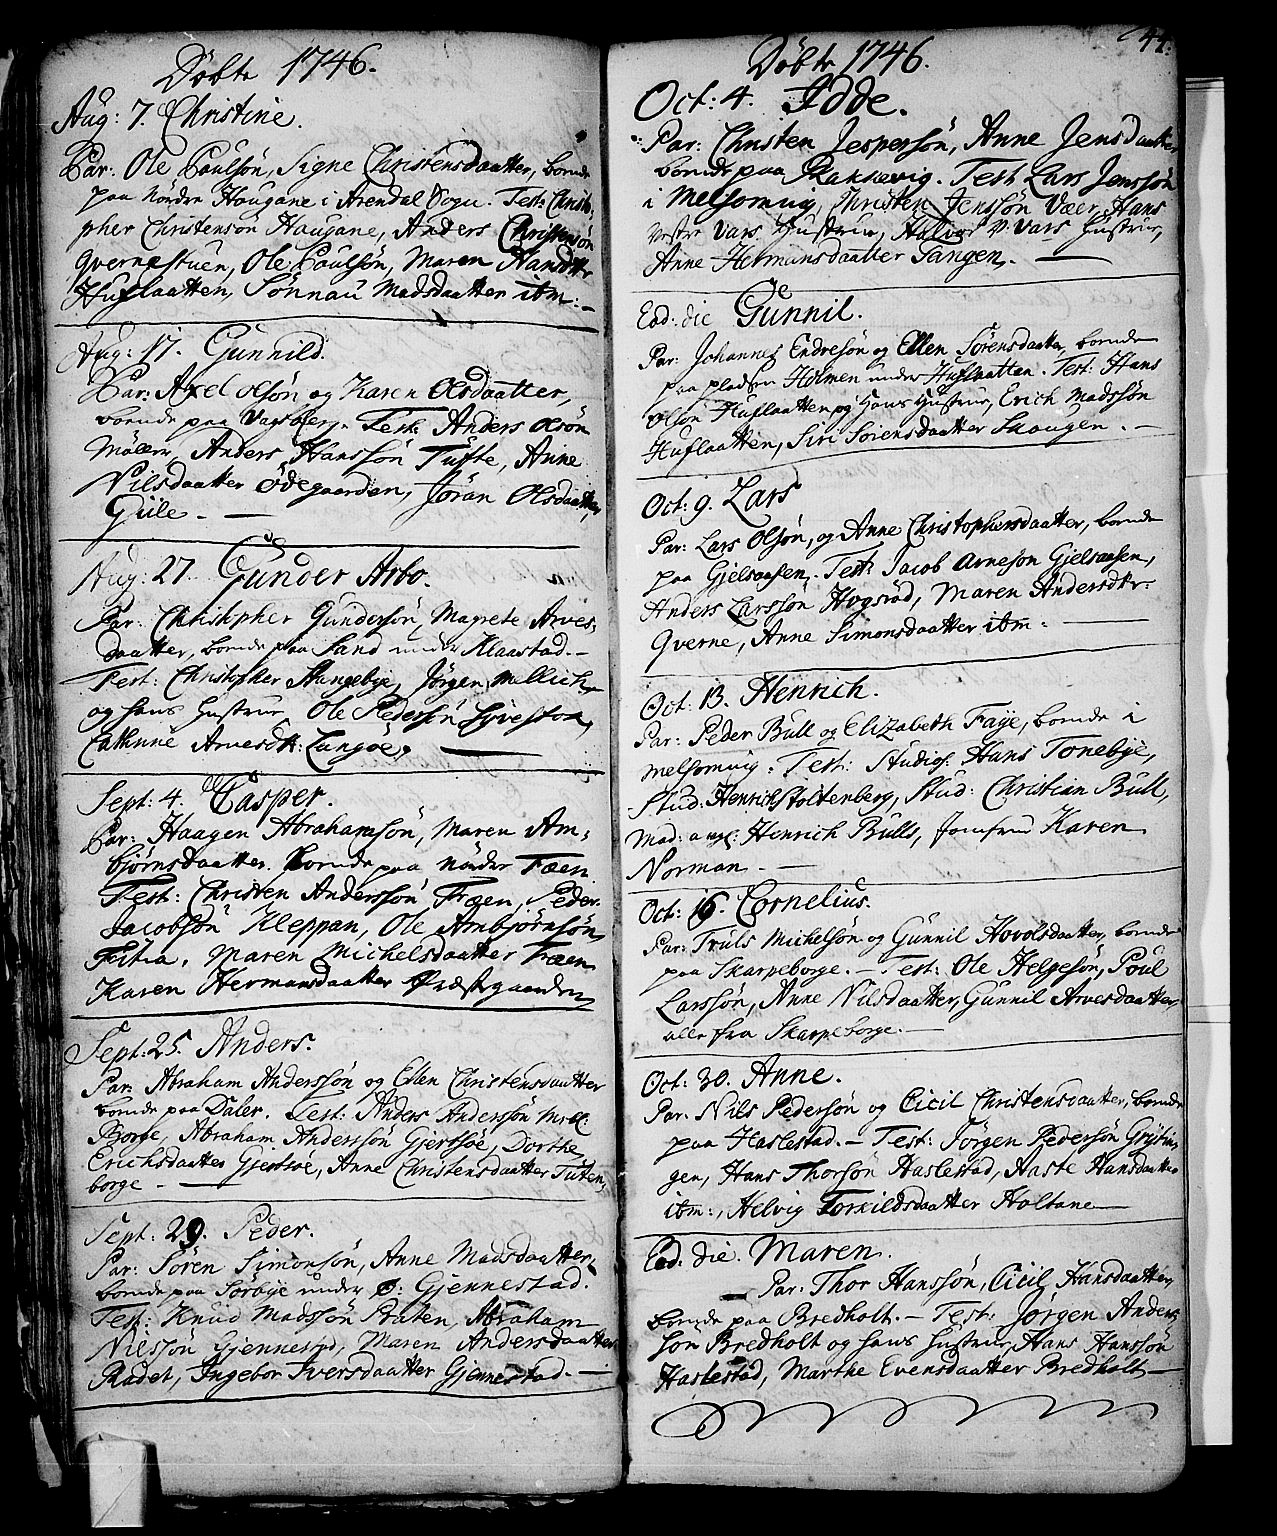 Döbte 1746.
Aug: 7. Christine.
Par: Ole Poulsön, Signe Christensdaatter, boende
paa nordre Haugane i Arendal Sogn. Test: Christo-
pher Christensön Haugane, Anders Christensön
Qvernestuen, Ole Poulsön, Maren Hansdtr
Huflaatten, Sönnau Madsdaatter ibm: -
Aug: 17. Gunnild.
Par: Axel Olsön og Karen Olsdaatter,
boende paa Vagsber. Test: Anders Olsön
Möller, Anders Hanssön Tufte, Anne
Nilsdaatter Ödegaarden, Jöran Olsdaatter,
Gule. -
Aug: 27. Gunder Arbo.
Par: Christopher Gundersön, Magrete Arves-
daatter, boende paa Sand under Klaastad. -
Test: Christopher Haugebye, Jörgen Mellich
og hans Hustrue, Ole Pedersön
Cathrine Arvesdtr: Langöe, -
Sept: 4. Casper.
Par: Haagen Abrahamsön, Maren Am-
björnsdaatter boende paa nordre Fræen.
Test: Christen Anderssön Fræen, Peder
Jacobsön Kleppan, Ole Ambjörnsön
Fitia, Maren Michelsdaatter Fræen
Karen Hermansdaatter Præstegaarden
Sept: 25. Anders.
Par: Abraham Anderssön og Ellen Christensdaatter
boende paa Daler. Test: Anders Anderssön
Borge, Abraham Anderssön Gjertsöe, Dorthe
Erichsdaatter Gjertsöe, Anne Christensdaatter Tuten
borge -
Sept: 29. Peder.
Par: Sören Simonsön, Anne Madsdaatter,
boende paa Sörbye under ö: Gjennestad.
Test: Knud Madssön Præten, Abraham
Nilssön Gjennestad, Maren Andersdaatter
Radet, Ingebor Iversdaatter Gjennestad. -
44.
Döbte 1746.
Oct: 4. Idde.
Par: Christen Jespersön, Anne Jensdaatter
boende paa Rakkevig. Test: Lars Jenssön
i Melsomvig, Christen Jenssön Væer, Hans
Vars Hustrue, Halvor Vars Hustrue,
Anne Hermansdaatter Tangen. -
Eod: die Gunnil.
Par: Johannes Endresön og Ellen Sörensdaatter, boende
paa pladsen Holmen under Huflaatten. Test: Hans
Olsön Huflaatten og hans Hustrue, Erich Madssön
Huflaatten, Siri Sörensdaatter Skaugen. -
Oct: 9. Lars
Par: Lars Olsön, og Anne Christophersdaatter, boende
paa Gjelsaasen. Test: Jacob Arnesön Gjelsaasen,
Anders Larssön Hogsröd, Maren Andersdtr:
Qverne, Anne Simonsdaatter ibm: -
Oct: 13. Henrich.
Par: Peder Bull og Elizabeth Faye, boende i
Melsomvig. Test: Studios: Hans Tonebye,
Stud: Henrich Stoltenberg, Stud: Christian Bull,
Mad: Henrich Bulls, Jomfrue Karen
Norman -
Oct: 16. Cornelius.
Par: Truls Michelsön og Gunnil Hovolsdaatter, boende
paa Skarpeborge. - Test: Ole Helgesön, Poul
Larssön, Anne Nilsdaatter, Gunnil Arvesdaatter,
alle fra Skarpeborge. -
Oct: 30. Anne.
Par: Nils Pedersön og Cicil Christensdaatter, boende
paa Haslestad. - Test: Jörgen Pedersön Grytin-
gen, Hans Thorsön Haslestad, Aaste Hansdaatter
ibm:, Helvig Torkildsdaatter Holtane -
Eod: die. Maren.
Par: Thor Hanssön, Cicil Hansdaatter,
boende paa Bredholt. - Test: Jörgen Anders
sön Bredholt og hans Hustrue, Hans Hanssön
Haslestad, Marthe Evensdaatter Bredholt -